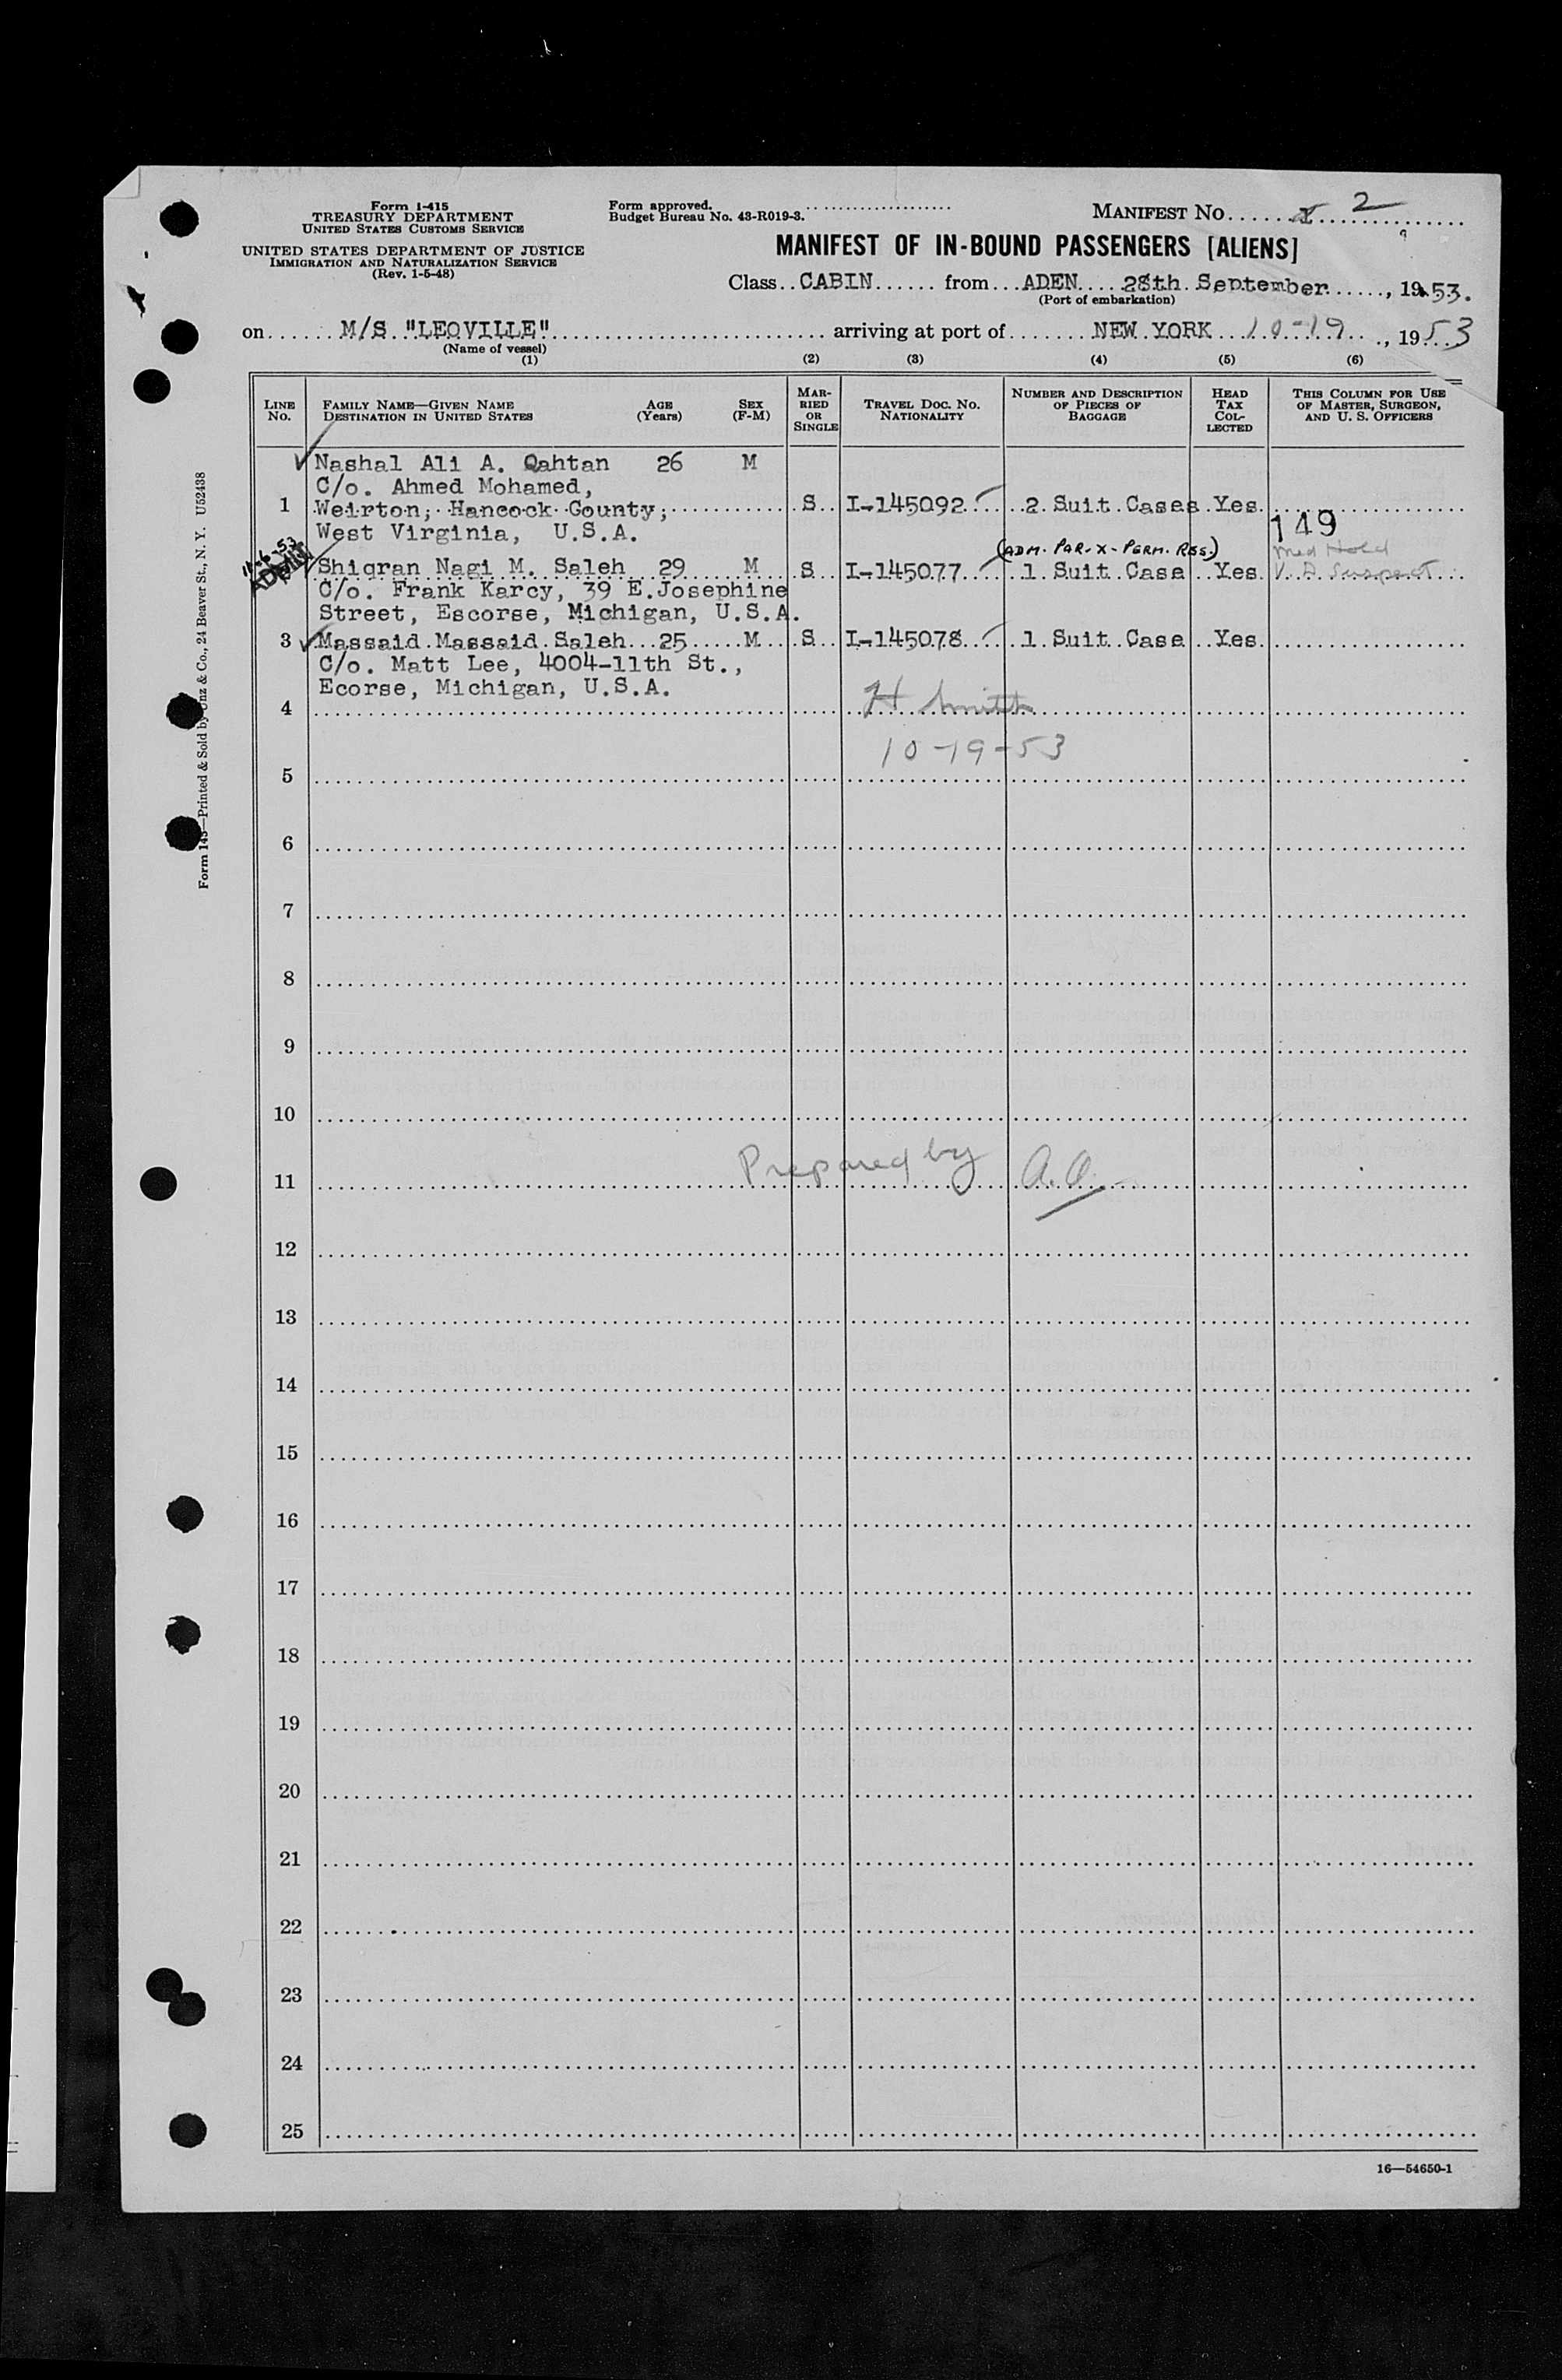 Form I-415
TREASURY DEPARTMENT
UNITED STATES CUSTOMS SERVICE
UNITED STATES DEPARTMENT OF JUSTICE
IMMIGRATION AND NATURALIZATION SERVICE
(Rev. 1-5-48)
Form approved.
Budget Bureau No. 43-R019-3.
MANIFEST NO. 2
MANIFEST OF IN-BOUND PASSENGERS [ALIENS]
Class CABIN from ADEN 28th September, 1953.
(Port of embarkation)
on M/S "LEOVILLE" arriving at port of NEW YORK 10-19, 1953
(Name of vessel)
(1) (2) (3) (4) (5) (6)
LINE NO. FAMILY NAME—GIVEN NAME DESTINATION IN UNITED STATES AGE (Years) SEX (F-M) MARRIED OR SINGLE TRAVEL DOC. NO. NATIONALITY NUMBER AND DESCRIPTION OF PIECES OF BAGGAGE HEAD TAX COLLECTED THIS COLUMN FOR USE OF MASTER, SURGEON, AND U. S. OFFICERS
Nashal Ali A. Qahtan 26 M
C/o. Ahmed Mohamed,
1 Weirton, Hancock County, S I-145092 2 Suit Cases Yes
West Virginia, U.S.A. 149
11-6-53 ADMIT (ADM. PAR-X-PERM. RES.) Med Hold
Shiqran Nagi M. Saleh 29 M S I-145077 1 Suit Case Yes V. D. Suspect
C/o. Frank Karcy, 39 E.Josephine
Street, Escorse, Michigan, U.S.A.
3 Massaid Massaid Saleh 25 M S I-145078 1 Suit Case Yes
C/o. Matt Lee, 4004-11th St.,
Ecorse, Michigan, U.S.A.
4 H Smith
10-19-53
5
6
7
8
9
10
Prepared by A.O.
11
12
13
14
15
16
17
18
19
20
21
22
23
24
25
16—54650-1
Form 143—Printed & Sold by Unz & Co., 24 Beaver St., N. Y. U52438